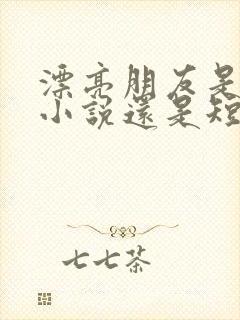 漂亮朋友是
小說還是短
七七茶